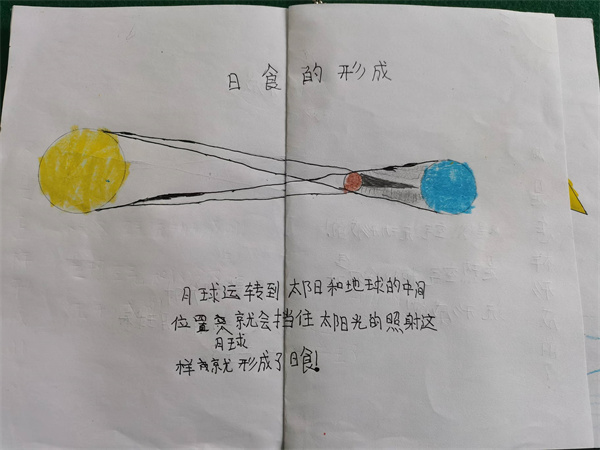 日食的形成
月球运转到太阳和地球的中间
位置就会挡住太阳光的照射这
月球
样就形成了日食!